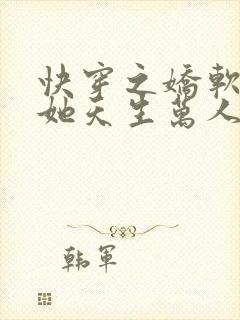 快穿之嬌軟
她天生萬人
韩軍